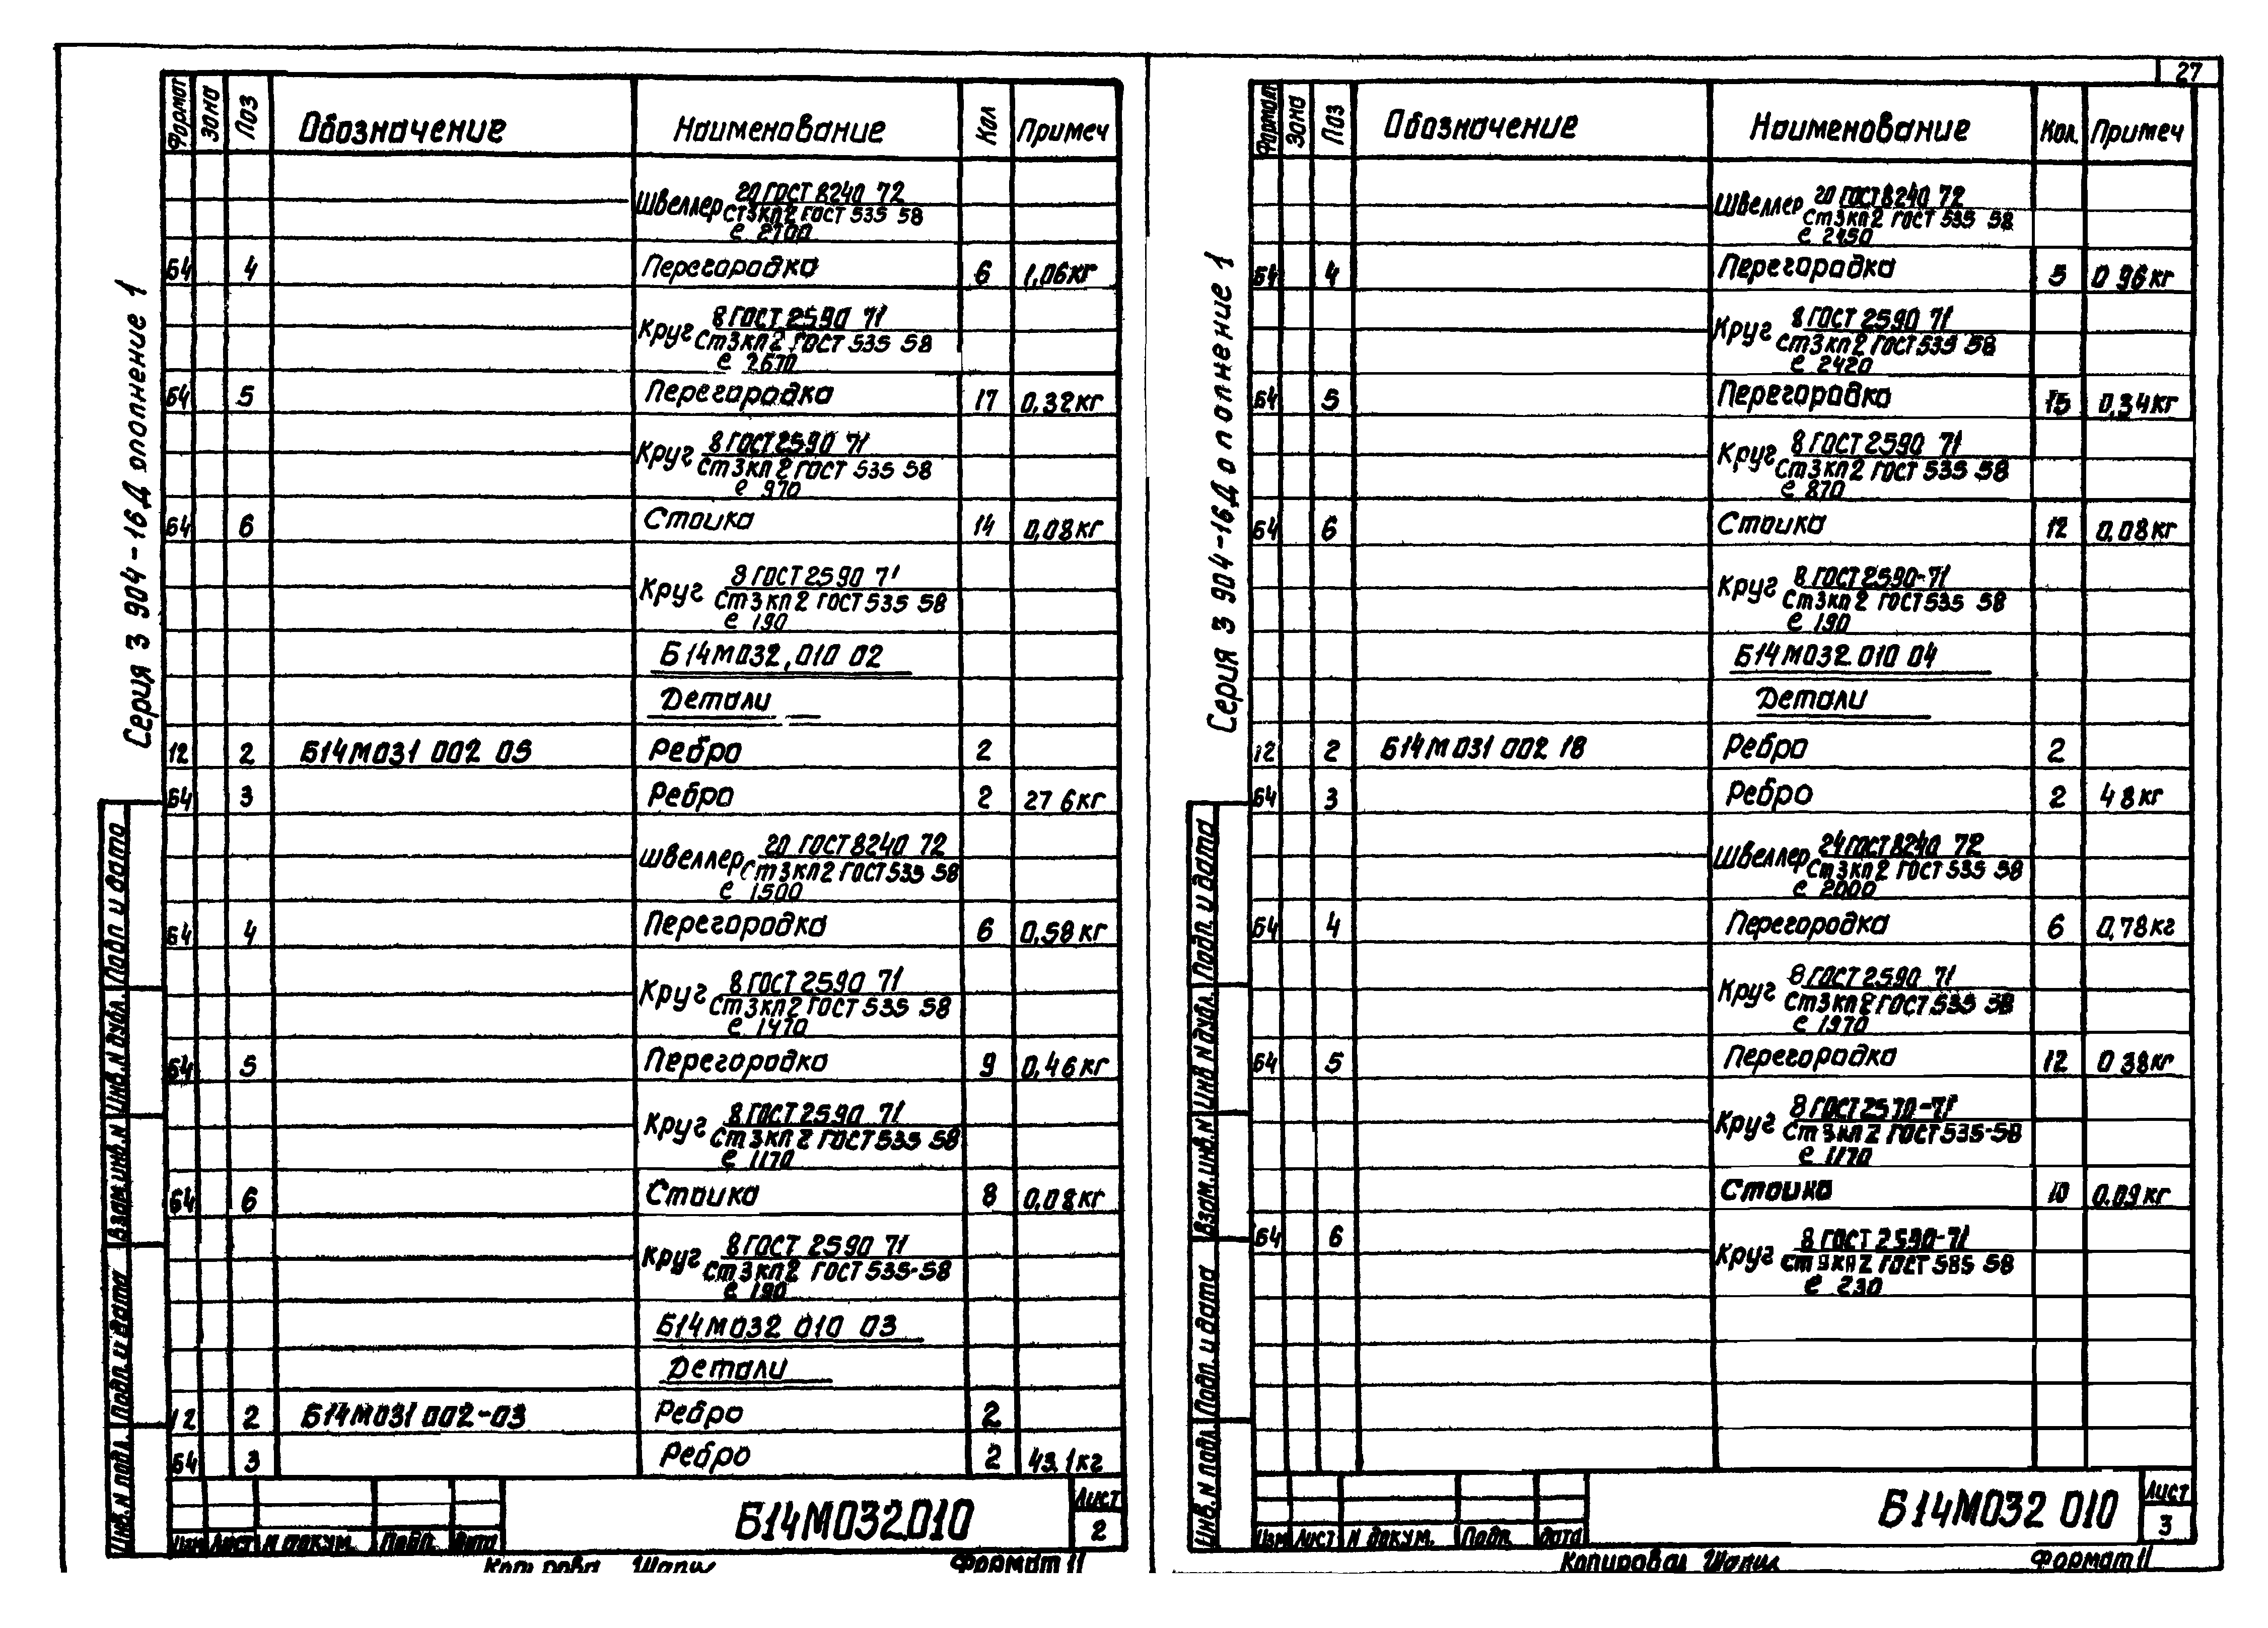 27
Серия 3 904-16 Дополнение 1
Формат Зона Поз Обозначение Наименование Кол Примеч
Швеллер 20 ГОСТ 8240 72
Ст3кп2 ГОСТ 535 58
е 2700
Б4 4 Перегородка 6 1,06кг
Круг 8 ГОСТ 2590 71
Ст3кп2 ГОСТ 535 58
е 2670
Б4 5 Перегородка 17 0,32кг
Круг 8 ГОСТ 2590 71
Ст3кп2 ГОСТ 535 58
е 970
Б4 6 Стоика 14 0,08кг
Круг 8 ГОСТ 2590 71
Ст3кп2 ГОСТ 535 58
е 190
Б14М032,010 02
Детали
12 2 Б14М031 002 05 Ребро 2
Б4 3 Ребро 2 27 6кг
Швеллер 20 ГОСТ 8240 72
Ст3кп2 ГОСТ 535 58
е 1500
Б4 4 Перегородка 6 0,58кг
Круг 8 ГОСТ 2590 71
Ст3кп2 ГОСТ 535 58
е 1470
Б4 5 Перегородка 9 0,46кг
Круг 8 ГОСТ 2590 71
Ст3кп2 ГОСТ 535 58
е 1170
Б4 6 Стоика 8 0,08кг
Круг 8 ГОСТ 2590 71
Ст3кп2 ГОСТ 535-58
е 190
Б14М032 010 03
Детали
12 2 Б14М031 002-03 Ребро 2
Б4 3 Ребро 2 43.1кг
Инв.N подл. Подп. и дата Взам.инв.N Инв.N дубл. Подп и дата
Изм Лист N докум. Подп. Дата
Б14М032.010
Лист
2
Формат 11
Серия 3 904-16 Дополнение 1
Формат Зона Поз Обозначение Наименование Кол. Примеч
Швеллер 20 ГОСТ 8240 72
Ст3кп2 ГОСТ 535 58
е 2450
Б4 4 Перегородка 5 0 96кг
Круг 8 ГОСТ 2590 71
Ст3кп2 ГОСТ 535 58
е 2420
Б4 5 Перегородка 15 0,34кг
Круг 8 ГОСТ 2590 71
Ст3кп2 ГОСТ 535 58
е 870
Б4 6 Стоика 12 0,08кг
Круг 8 ГОСТ 2590-71
Ст3кп2 ГОСТ 535 58
е 190
Б14М032 010 04
Детали
12 2 Б14М031 002 18 Ребро 2
Б4 3 Ребро 2 48кг
Швеллер 24 ГОСТ 8240 72
Ст3кп2 ГОСТ 535 58
е 2000
Б4 4 Перегородка 6 0,78кг
Круг 8 ГОСТ 2590 71
Ст3кп2 ГОСТ 535 58
е 1970
Б4 5 Перегородка 12 0 38кг
Круг 8 ГОСТ 2590-71
Ст3кп2 ГОСТ 535-58
е 1170
Стоика 10 0.09кг
Б4 6
Круг 8 ГОСТ 2590-71
Ст3кп2 ГОСТ 535 58
е 230
Инв.N подл. Подп. и дата Взам.инв.N Инв N дубл. Подп. и дата
Изм Лист N докум. Подп. Дата
Б14М032 010
Лист
3
Копировал Формат 11